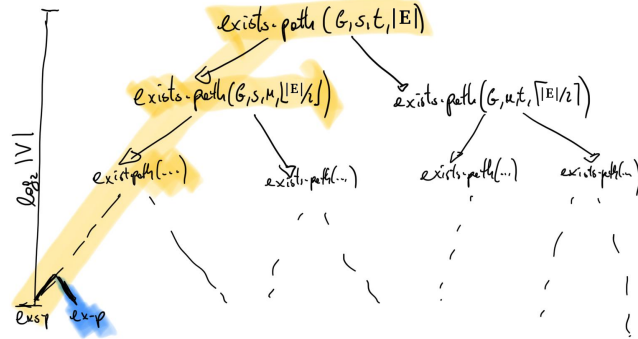 exists-path (G, s, t, |E|)
exists-path(G, s, u, ⌊|E|/2⌋) exists-path(G, u, t, ⌈|E|/2⌉)
existpath(...) exists-path(...) exists-path(...) exists-path(...)
log₂ |V|
ex-p